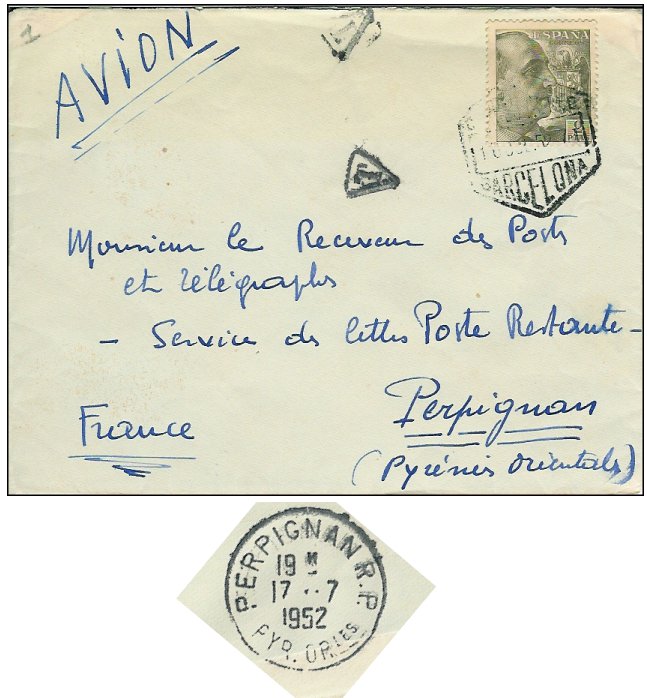 1
AVION
ESPAÑA
CORREOS
BARCELONA
T
Monsieur le Receveur des Postes
et Télégraphes
- Service des lettres Poste Restante -
Perpignan
France
(Pyrénées Orientales)
PERPIGNAN R.P.
19 H
17 - 7
1952
PYR. ORLES